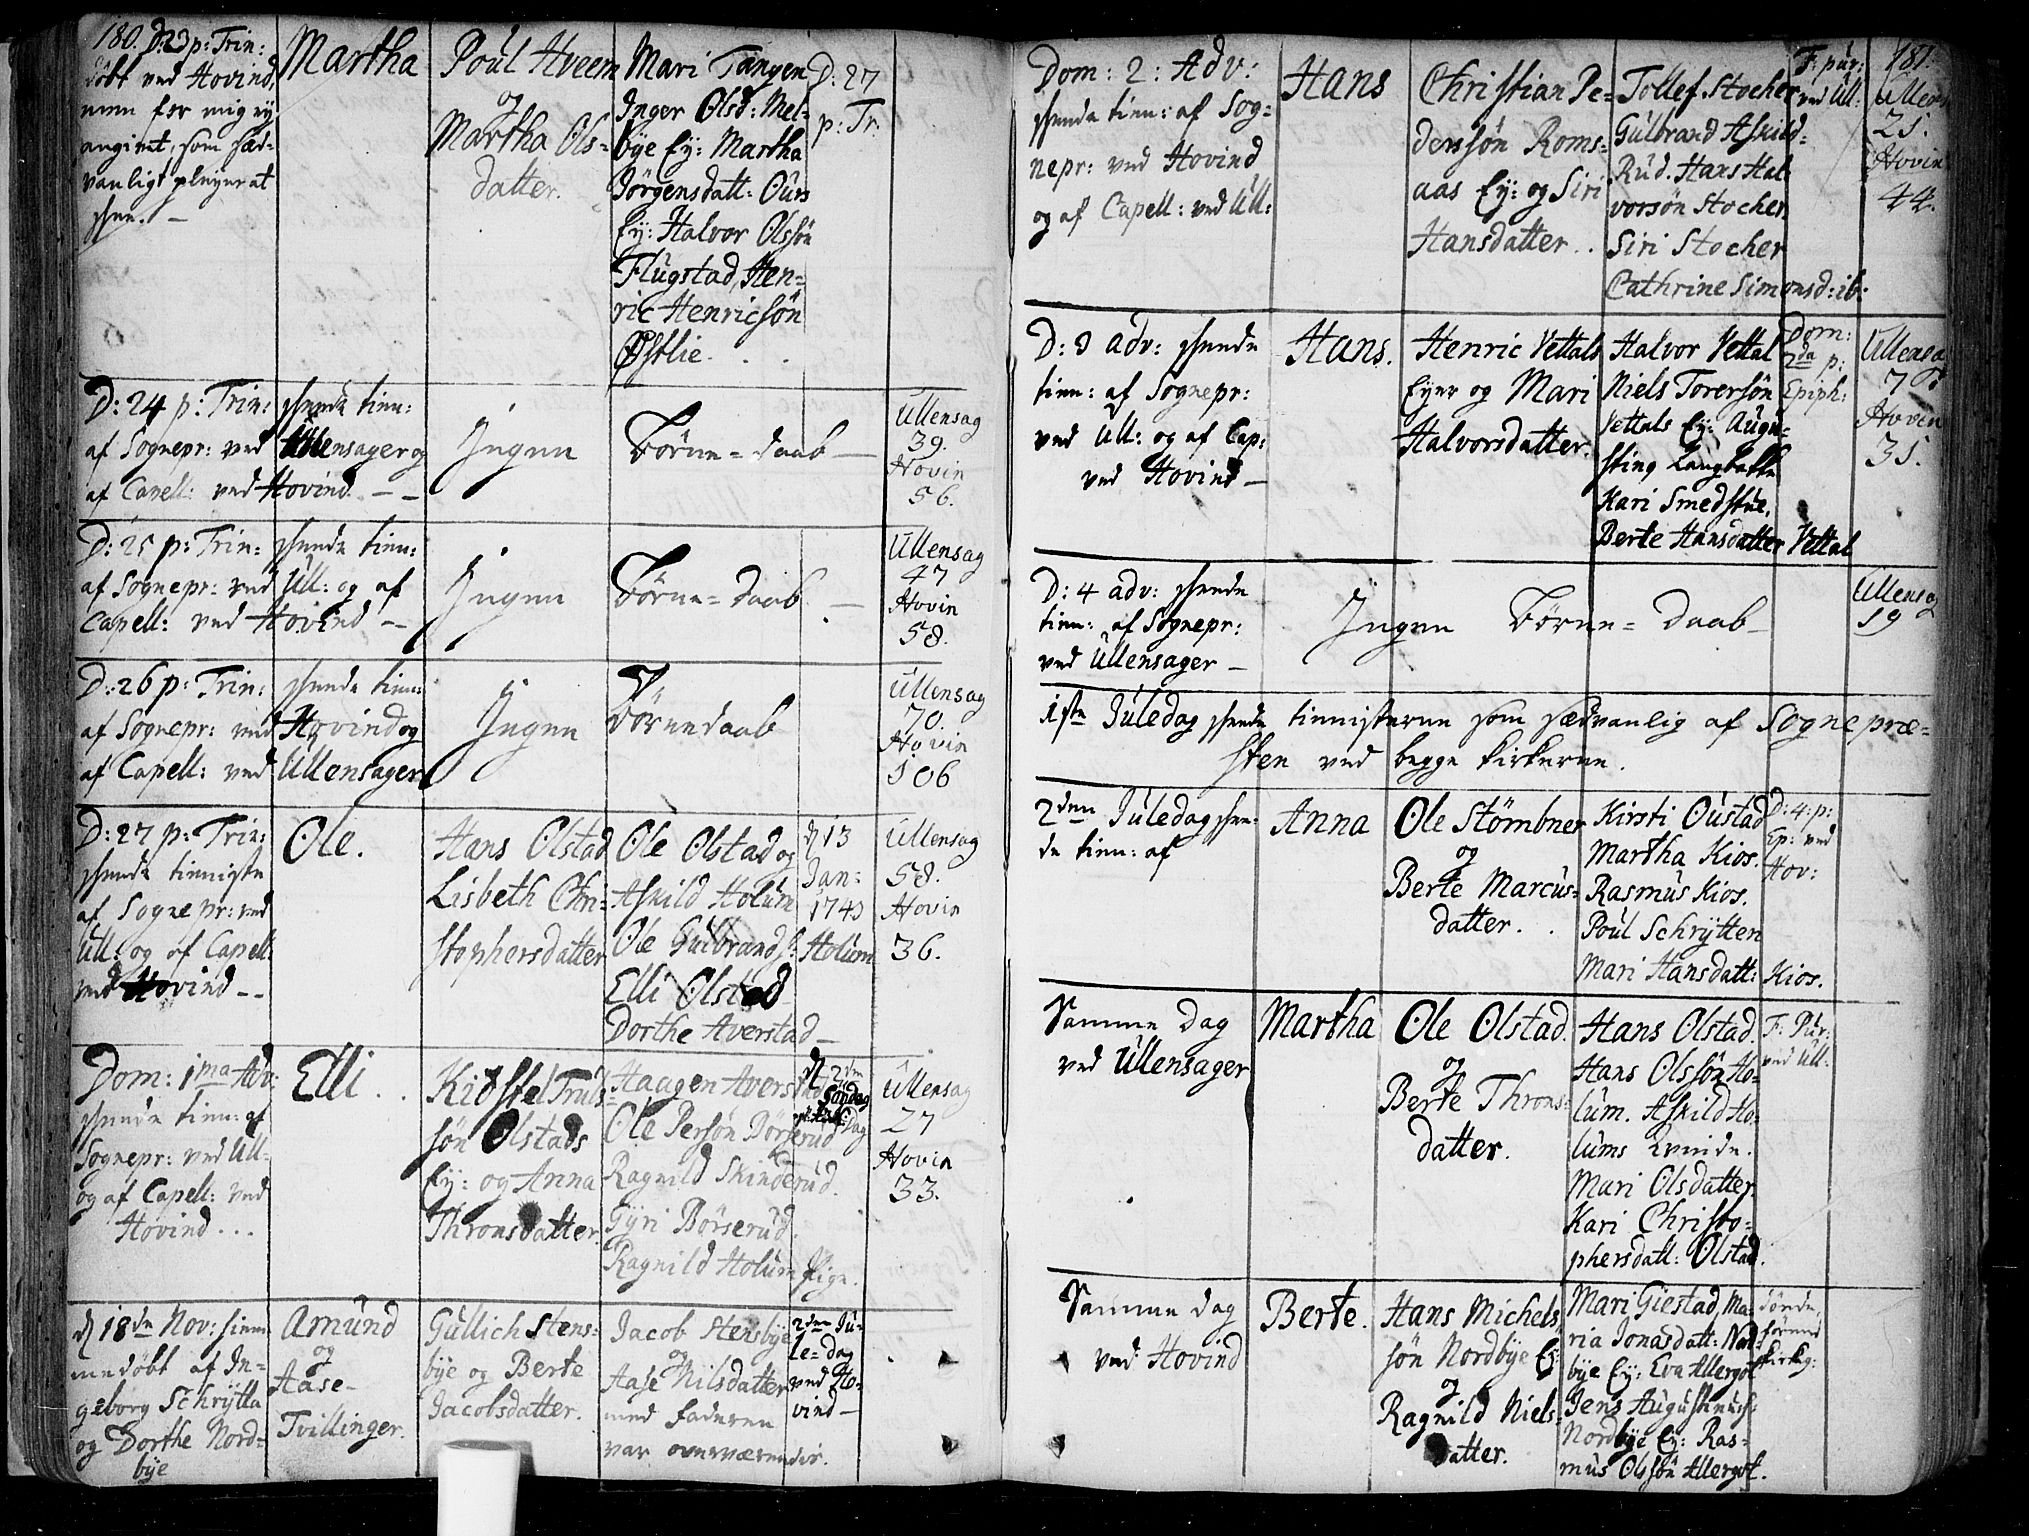 180. D: 23 p: Trin:
döbt ved Hovind,
men for mig ey
angivet, som sæd-
vanligt pleyer at
skee. —
Martha
Poul Hveem
og
Martha Ols-
datter.
Mari Tangen
Inger Olsd: Mel-
bye Ey: Martha
Jörgensdatt: Ours
Ey: Halvor Olssön
Flugstad, Hen-
ric Henricsön
Østlie. . .
D: 27
p: Tr:
D: 24 p: Trin: skeede tien:
af Sognepr: ved Ullensager og
af Capell: ved Hovind. — —
Ingen Börne-daab —
Ullensag
39.
Hovin
56.
D: 25 p: Trin: skeede tien:
af Sognepr: ved Ull: og af
Capell: ved Hovind —
Ingen Börne-daab. —
Ullensag
47
Hovin
58.
D: 26 p: Trin: skeede tien:
af Sognepr: ved Hovind og
af Capell: ved Ullensager
Ingen Börnedaab
Ullensag
70.
Hovin
106
D: 27 p: Trin:
skeede tienniste
af Sognepr: ved
Ull: og af Capell:
ved Hovind — —
Ole.
Hans Olstad
Lisbeth Chri-
stophersdatter
Ole Olstad og
Askild Holum
Ole Gulbrands: Holum
Elli Olstad
Dorthe Averstad —
d 13
Jan:
1743
Ullensag
58.
Hovin
36.
Dom: 1ma Adv:
skeede tien: af
Sognepr: ved Ull:
og af Capell: ved
Hovind . . .
Elli . .
Kidstel Truls-
sön Olstads
Ey: og Anna
Thronsdatter.
Haagen Averstad
Ole Persön Börserud
Ragnild Skinderud.
Gyri Börserud.
Ragnild Holum Pige.
d 2den
Söndag
Ullensag
27
Hovin
33.
d 18de Nov: hiem-
medöbt af In-
geborg Schrytta
og Dorthe Nord-
bye
Amund
og
Aase —
Tvillinger.
Gullich Stens-
bye og Berte
Jacobsdatter.
Jacob Stensbye
og
Aase Nilsdatter
med faderen
var overværendes.
2den Ju-
le-dag
ved Ho-
vind —
181.
Dom: 2: Adv:
skeede tien: af Sog-
nepr: ved Hovind
og af Capell: ved Ull:
Hans
Christian Pe-
derssön Roms-
aas Ey: og Siri
Hansdatter . .
Tollef Stocher
Gulbrand Askild-
Rud. Hans Hal-
vorsön Stocher.
Siri Stocher
Cathrine Simonsd: ib:
F: pur:
ved Ull:
Ullens
25.
Hovin
44.
D: 3 adv: skeede
tien: af Sognepr:
ved Ull: og af Cap:
ved Hovind —
Hans.
Henric Vettals
Eyer og Mari
Halvorsdatter.
Halvor Vettal
Niels Torersön
Vettals Ey: Augu-
stinq Langbakke
Kari Smedstue,
Berte Hansdatter Vettal
Dom:
2da p:
Epiph:
Ullensa
Hovin
35.
D: 4 adv: skeede
tien: af Sognepr:
ved Ullensager —
Ingen Börne-daab —
Ullensag
19
1ste Juledag skeede tiennisterne som sædvanlig af Sognepræ-
sten ved begge kirkerne.
2den Juledag skee-
de tien: af
Anna
Ole Stömbner
og
Berte Marcus-
datter. . .
Kirsti Oustad
Martha Kios.
Rasmus Kios.
Poul Schrytten
Mari Hansdatt: Kios.
D: 4: p:
Ep: ved
Hov:
Samme Dag
ved Ullensager
Martha
Ole Olstad.
og
Berte Throns-
datter.
Hans Olstad.
Hans Olssön Ho-
lum. Askild Ho-
lums Qvinde.
Mari Olsdatter.
Kari Christo-
phersdatt: Olstad.
F: Pur:
ved Ull:
Samme dag
ved Hovind
Berte.
Hans Michels
sön Nordbye Ey:
og
Ragnild Niels-
datter.
Mari Giestad, Ma-
ria Jonasdatt: Nord-
bye Ey: Eva Allergot
Jens Augustinus:
Nordbye Ey: Ras-
mus Olssön Allergot.
döede,
förend
Kirkeg: